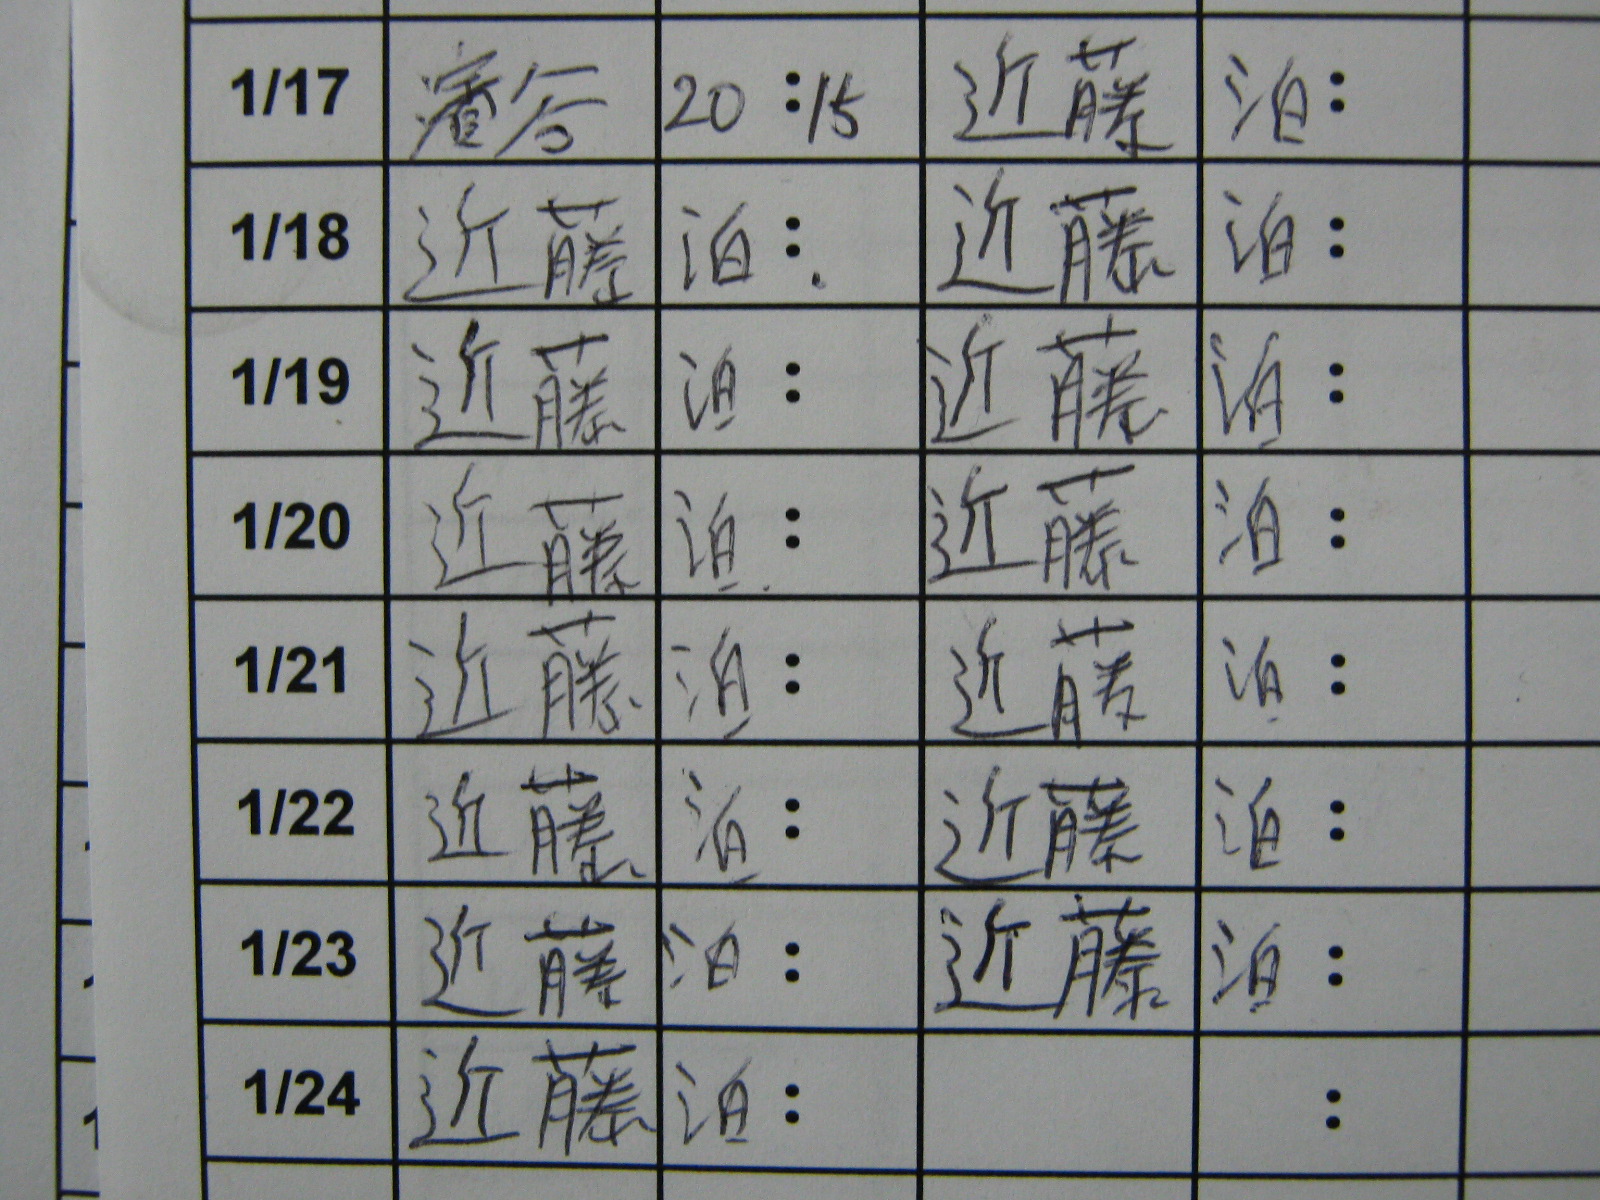 1/17 澤谷 20:15 近藤 泊:
1/18 近藤 泊: 近藤 泊:
1/19 近藤 泊: 近藤 泊:
1/20 近藤 泊: 近藤 泊:
1/21 近藤 泊: 近藤 泊:
1/22 近藤 泊: 近藤 泊:
1/23 近藤 泊: 近藤 泊:
1/24 近藤 泊: :